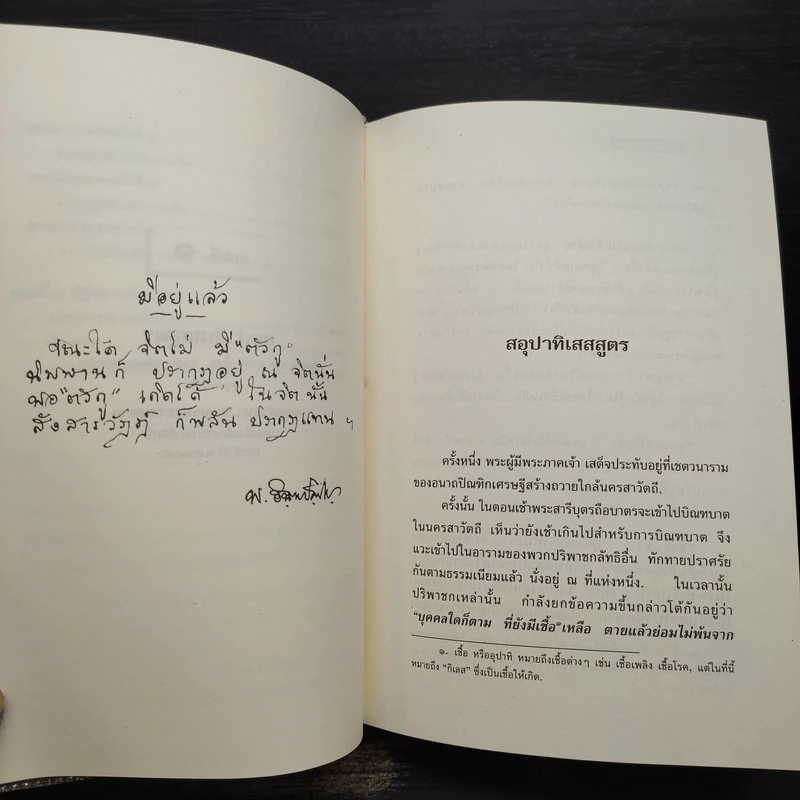 มีอยู่แล้ว
ขณะใด จิตไม่ มี "ตัวกู"
นิพพานก็ ปรากฏอยู่ ณ จิตนั้น
พอ "ตัวกู" เกิดได้ ในจิตนั้น
สังสารวัฏฏ์ ก็พลัน ปรากฏแทน ฯ
พ.
สอุปาทิเสสสูตร
ครั้งหนึ่ง พระผู้มีพระภาคเจ้า เสด็จประทับอยู่ที่เชตวนาราม
ของอนาถปิณฑิกเศรษฐีสร้างถวายใกล้นครสาวัตถี.
ครั้งนั้น ในตอนเช้าพระสารีบุตรถือบาตรจะเข้าไปบิณฑบาต
ในนครสาวัตถี เห็นว่ายังเช้าเกินไปสำหรับการบิณฑบาต จึง
แวะเข้าไปในอารามของพวกปริพาชกลัทธิอื่น ทักทายปราศรัย
กันตามธรรมเนียมแล้ว นั่งอยู่ ณ ที่แห่งหนึ่ง. ในเวลานั้น
ปริพาชกเหล่านั้น กำลังยกข้อความขึ้นกล่าวโต้กันอยู่ว่า
"บุคคลใดก็ตาม ที่ยังมีเชื้อ๑เหลือ ตายแล้วย่อมไม่พ้นจาก
๑. เชื้อ หรืออุปาทิ หมายถึงเชื้อต่างๆ เช่น เชื้อเพลิง เชื้อโรค, แต่ในที่นี้
หมายถึง "กิเลส" ซึ่งเป็นเชื้อให้เกิด.